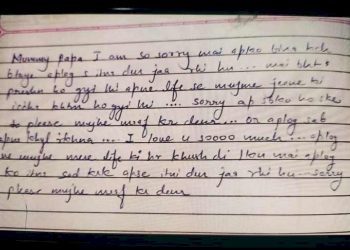 Mummy Papa I am so sorry mai apko bina kuch
btaye aplog s itni dur jaa rhi hu ... mai bht
preshn ho gyi thi apne life se mujme jeene ki
ichha khtm ho gyi thi .... sorry ap sbko ho ske
to please mujhe maaf kr dena ... or aplog sab
apna khyl rkhna ... I love u soooo much ... aplog
ne mujhe mere life ki hr khushi di mai aplog
ko itna sad krk apse itni dur jaa rhi hu sorry
please mujhe maaf kr dena